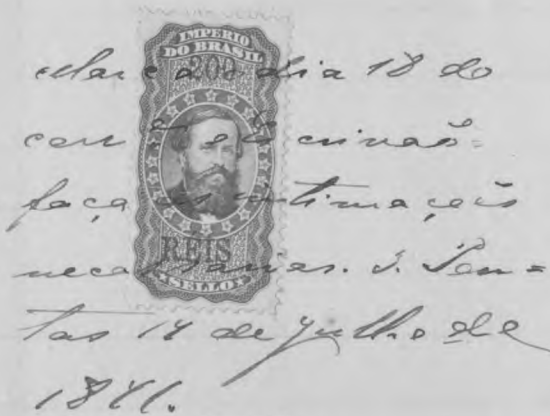 IMPERIO
DO BRASIL
200
REIS
SELLO
Marco o dia 18 do
faça as intimações
necessarias. S.
tas 14 de Julho de
1881.